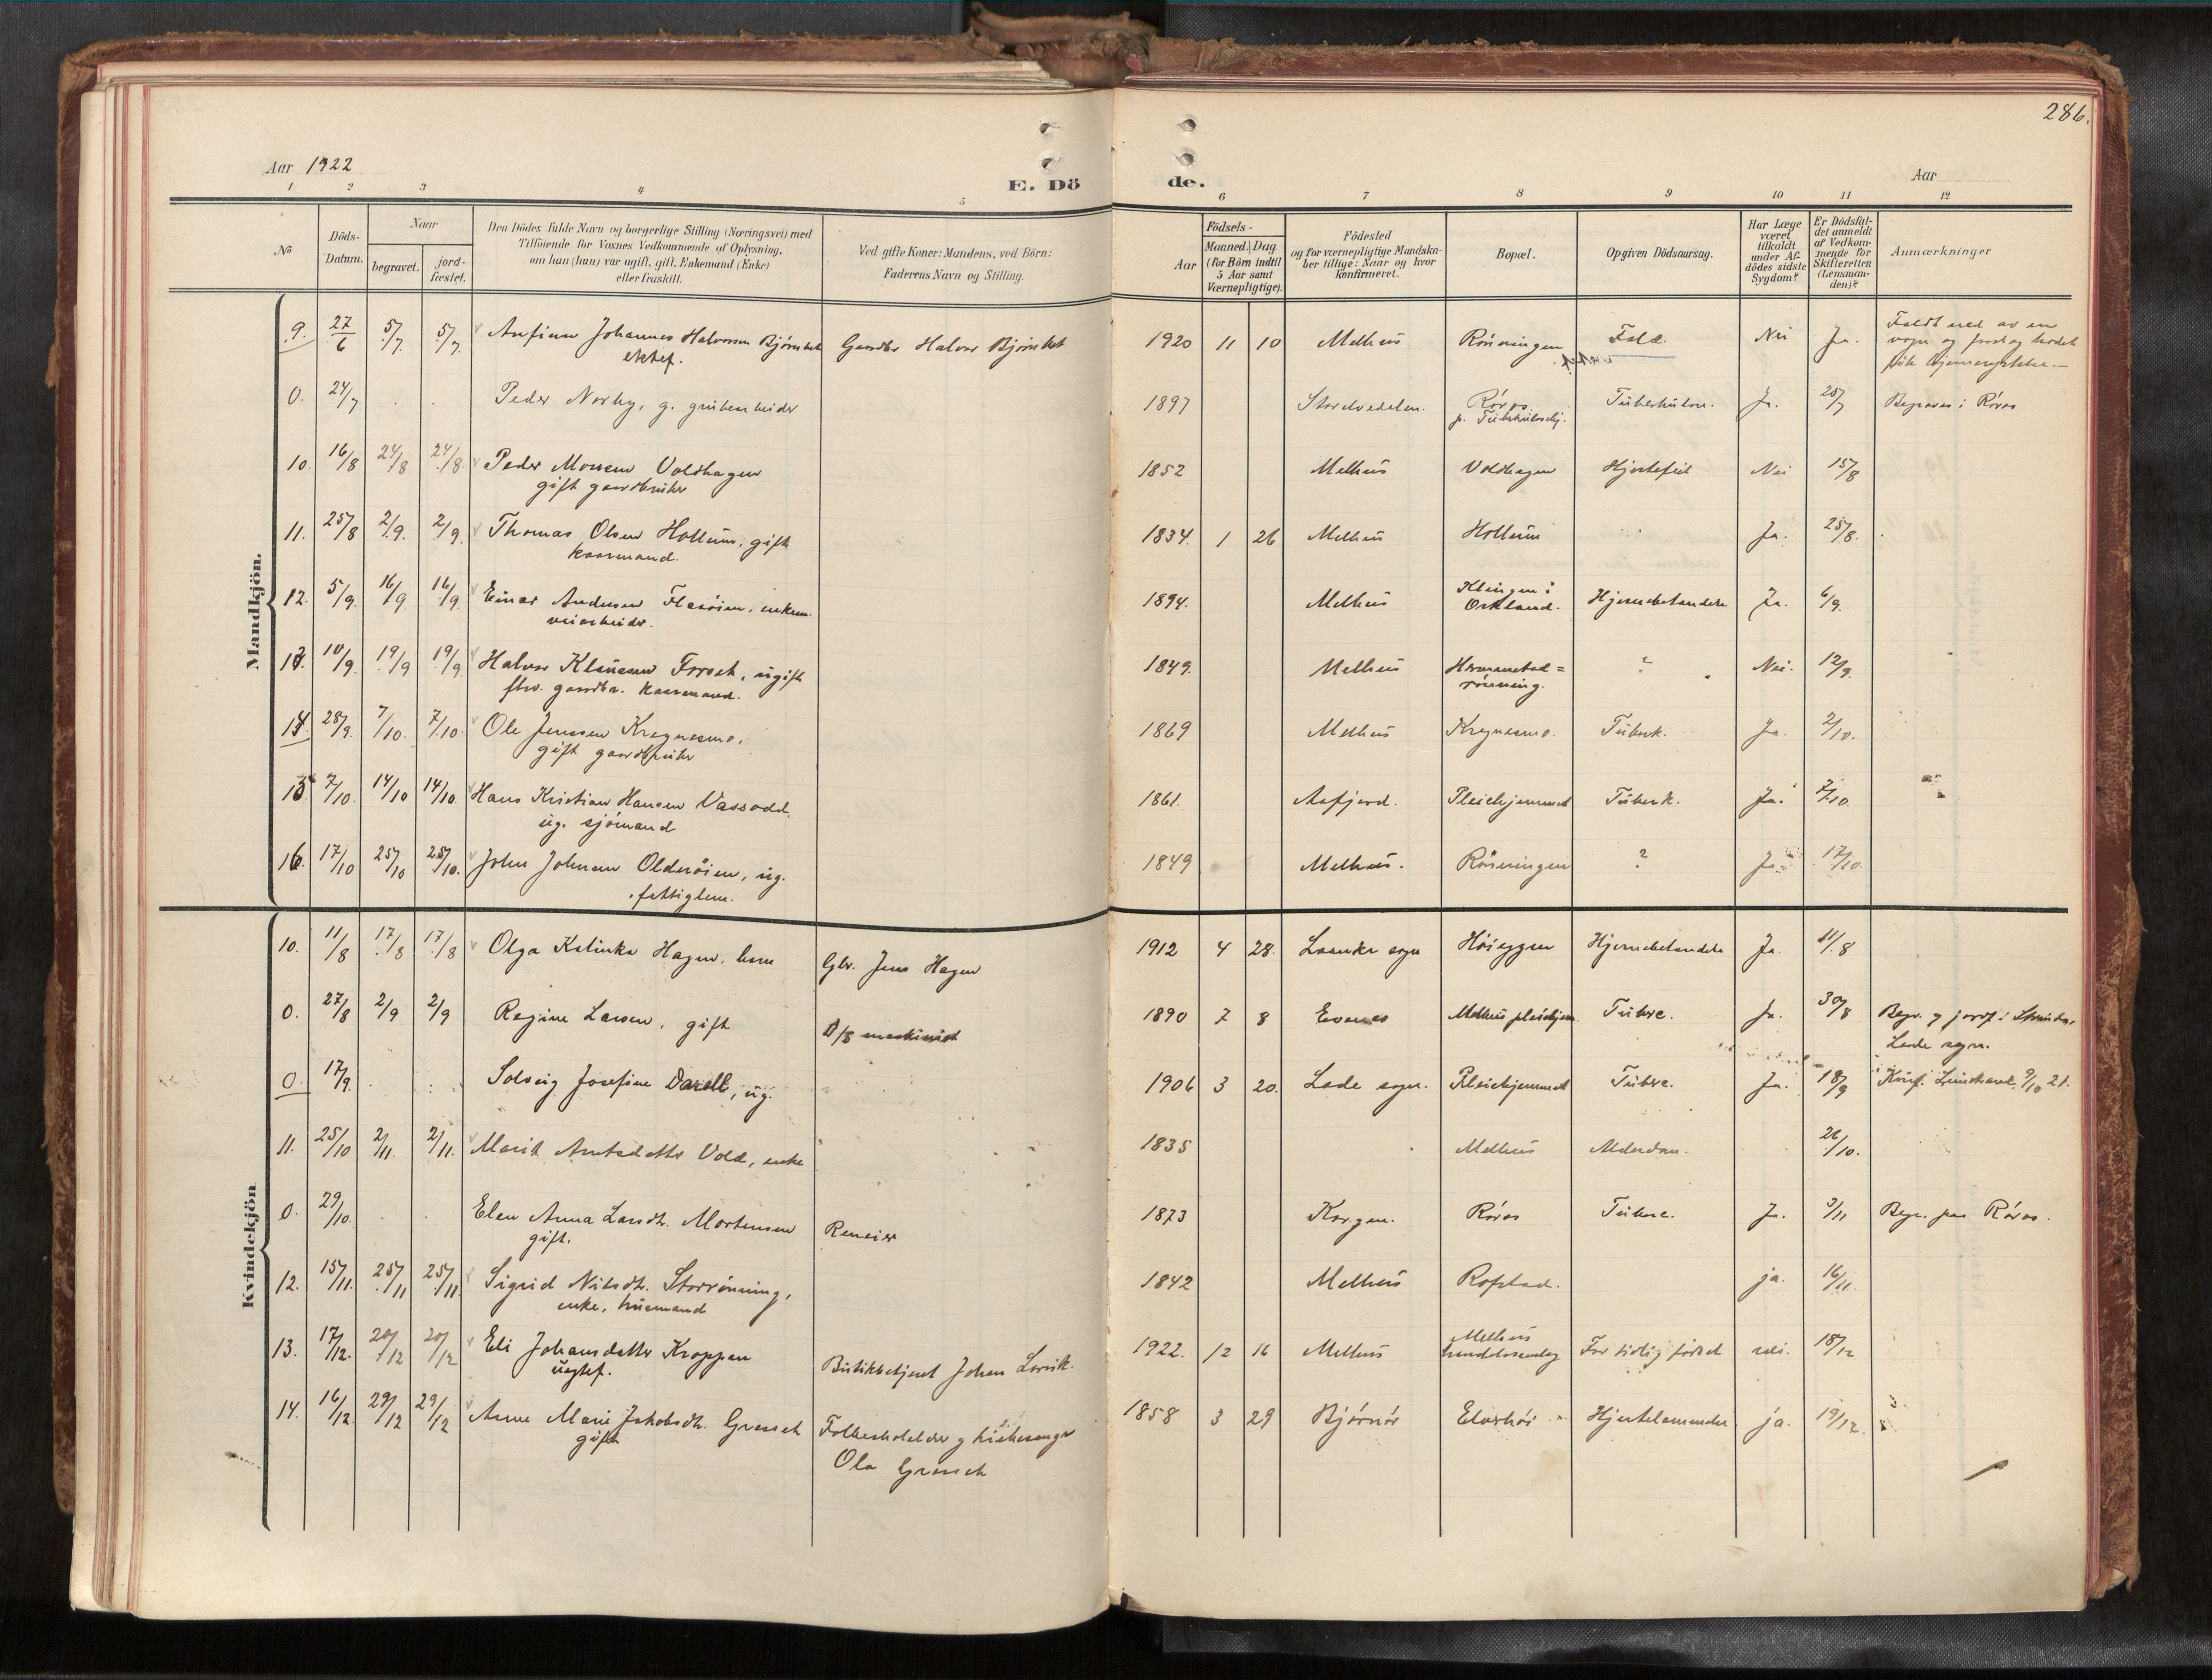 286.
Aar 1922
E. Dö
de.
Aar
1 2 3 4 5 6 7 8 9 10 11 12
No
Döds-Datum.
Naar
begravet.
jord-fæstet.
Den Dödes fulde Navn og borgerlige Stilling (Næringsvei) med
Tilföiende for Voxnes Vedkommende af Oplysning,
om han (hun) var ugift, gift, Enkemand (Enke)
eller fraskilt.
Ved gifte Koner: Mandens, ved Börn:
Faderens Navn og Stilling.
Aar
Födsels-
Maaned. Dag.
(for Börn indtil
5 Aar samt
Værnepligtige).
Födested
og for værnepligtige Mandska-
ber tillige: Naar og hvor
konfirmeret.
Bopæl.
Opgiven Dödsaarsag.
Har Læge
været
tilkaldt
under Af-
dödes sidste
Sygdom?
Er Dödsfal-
det anmeldt
af Vedkom-
mende for
Skifteretten
(Lensman-
den)?
Anmærkninger
Mandkjön.
9. 27/6 5/7. 5/7. Anfinn Johannes Halvorsen Bjørnbet Gaardbr Halvor Bjørnbet 1920 11 10 Melhus Rönningen Fald. Nei Ja. Faldt ned av en
ektef. vogn og
0. 24/7 Peder Norby, g. grubearbeider 1897 Röros Tuberkulose. Ja. 25/7 Begraves i Röros
p.
10. 16/8 24/8 24/8 Peder Monsen Voldhagen 1852 Melhus Voldhagen Hjertefeil Nei 15/8
gift gaardbruker
11. 25/8 2/9. 2/9. Thomas Olsen Hollum, gift 1834. 1 26 Melhus Hollum Ja. 25/8.
kaarmand.
12. 5/9. 16/9 16/9. Einar Andersen Flaaöien, enkem. 1894. Melhus Klingen i
Orkland. Hjernebetændelse Ja. 6/9.
veiarbeider.
13. 10/9. 19/9 19/9 Halvor Klausen Forset, ugift 1849. Melhus ? Nei. 12/9.
fhv. gaardbr. kaarmand. rönning.
14. 28/9. 7/10. 7/10 Ole Jenssen Kregnesmo, 1869 Melhus Kregnesmo. Tuberk. Ja. 2/10.
gift gaardbruker
15 7/10 14/10 14/10. Hans Kristian Hansen Vassodd. 1861. Aafjord. Pleiehjemmet Tuberk. Ja. 7/10.
ug. sjömand
16. 17/10 25/10 25/10. John Johnsen Olderöien, ug. 1849 Melhus. Rönningen ? Ja 17/10
fattiglem.
Kvindekjön
10. 11/8 17/8 17/8 Olga Katinka Hagen, barn Gbr. Jens Hagen 1912 4 28. Høieggen Hjernebetændelse Ja. 11/8
0. 27/8 2/9 2/9 Regine Larsen, gift D/S maskinist 1890 7 8 Evenes Melhus pleiehjem. Tuberc. Ja. 30/8 Begr. og jordf. i
Lade sogn.
0. 17/9. Solveig Josefine Darell, ug. 1906 3 20. Lade sogn. Pleiehjemmet Tuberc. Ja. 18/9 Konf. 9/10 21.
11. 25/10 2/11. 2/11. Marit Arntsdatter Vold, enke 1835 Melhus Alderdom. 26/10.
0. 29/10. Elen Anna Larsdtr. Mortensen Reneier 1873 Korgen. Röros Tuberc. Ja. 3/11 Begr. paa Röros.
gift.
12. 15/11. 25/11 25/11 Sigrid Nilsdtr. Storrönning, 1842 Melhus Rofstad. ja. 16/11
enke, husmand
13. 17/12. 20/12 20/12 Eli Johansdatter Kroppan Butikbetjent Johan Lorvik. 1922. 12 16 Melhus Melhus For tidlig födsel nei. 18/12
uegtef.
14. 16/12. 29/12 29/12 Anne Marie Jakobsdtr. Gravseth Folkeskolelærer og kirkesanger 1858 3 29 Bjørnør Elverhöi Hjertelammelse ja. 19/12.
gift Ola